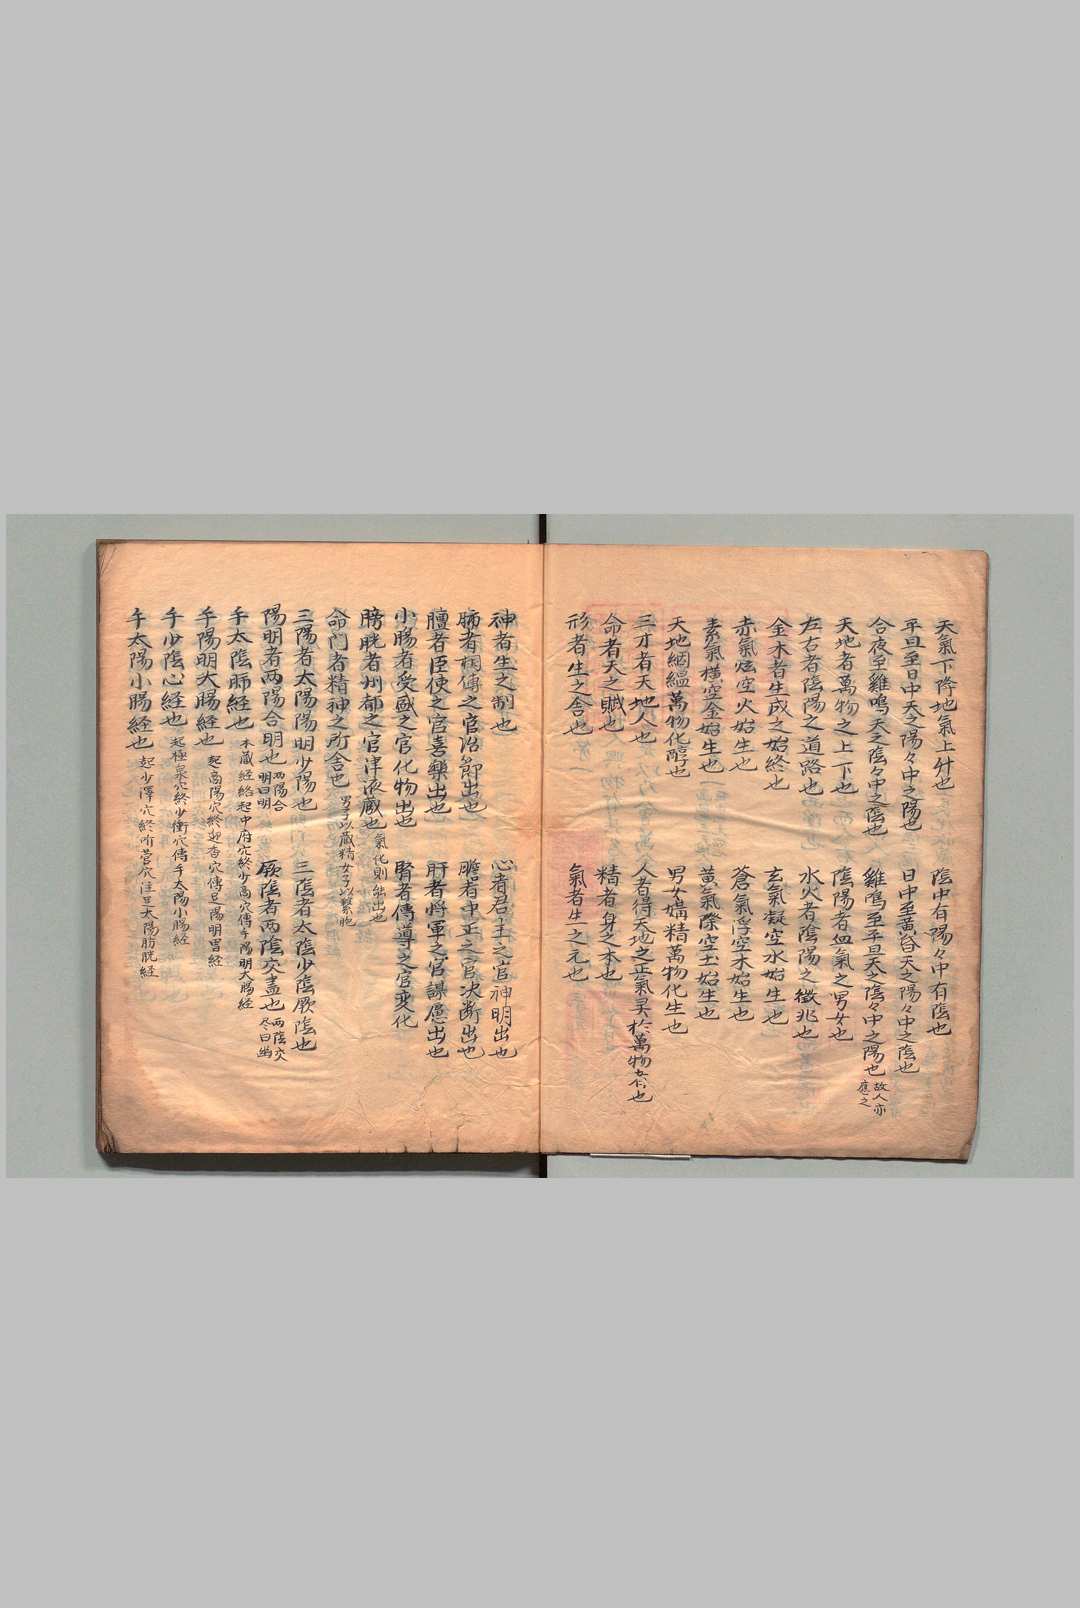 天氣下降地氣上升也　陰中有陽々中有陰也
平旦至日中天之陽々中之陽也　日中至黃昏天之陽々中之陰也
合夜至雞鳴天之陰々中之陰也　雞鳴至平旦天之陰々中之陽也 故人亦應之
天地者萬物之上下也　陰陽者血氣之男女也
左右者陰陽之道路也　水火者陰陽之徵兆也
金木者生成之始終也　玄氣凝空水始生也
赤氣炫空火始生也　蒼氣浮空木始生也
素氣橫空金始生也　黄氣際空土始生也
天地絪縕萬物化醇也　男女媾精萬物化生也
三才者天地人也　人者得天地之正氣灵於萬物者也
命者天之賦也　精者身之本也
形者生之舍也　氣者生之元也
神者生之制也　心者君主之官神明出也
肺者相傅之官治節出也　膽者中正之官决断出也
膻者臣使之官喜樂出也　肝者將軍之官謀慮出也
小腸者受盛之官化物出也　腎者傳導之官变化
膀胱者州都之官津液藏也 氣化則能出也
命门者精神之所舍也 男子以藏精女子以繫胞
三陽者太陽陽明少陽也　三陰者太陰少陰厥陰也
陽明者两陽合明也 两陽合明曰明　厥陰者两陰交盡也 两陰交尽曰幽
手太陰肺經也 本藏經絡起中府穴終少商穴傳手陽明大腸經
手陽明大腸經也 起商陽穴終迎香穴傳足陽明胃經
手少陰心經也 起極泉穴終少衝穴傳手太陽小腸經
手太陽小腸經也 起少澤穴終听宮穴注足太陽肪胱經